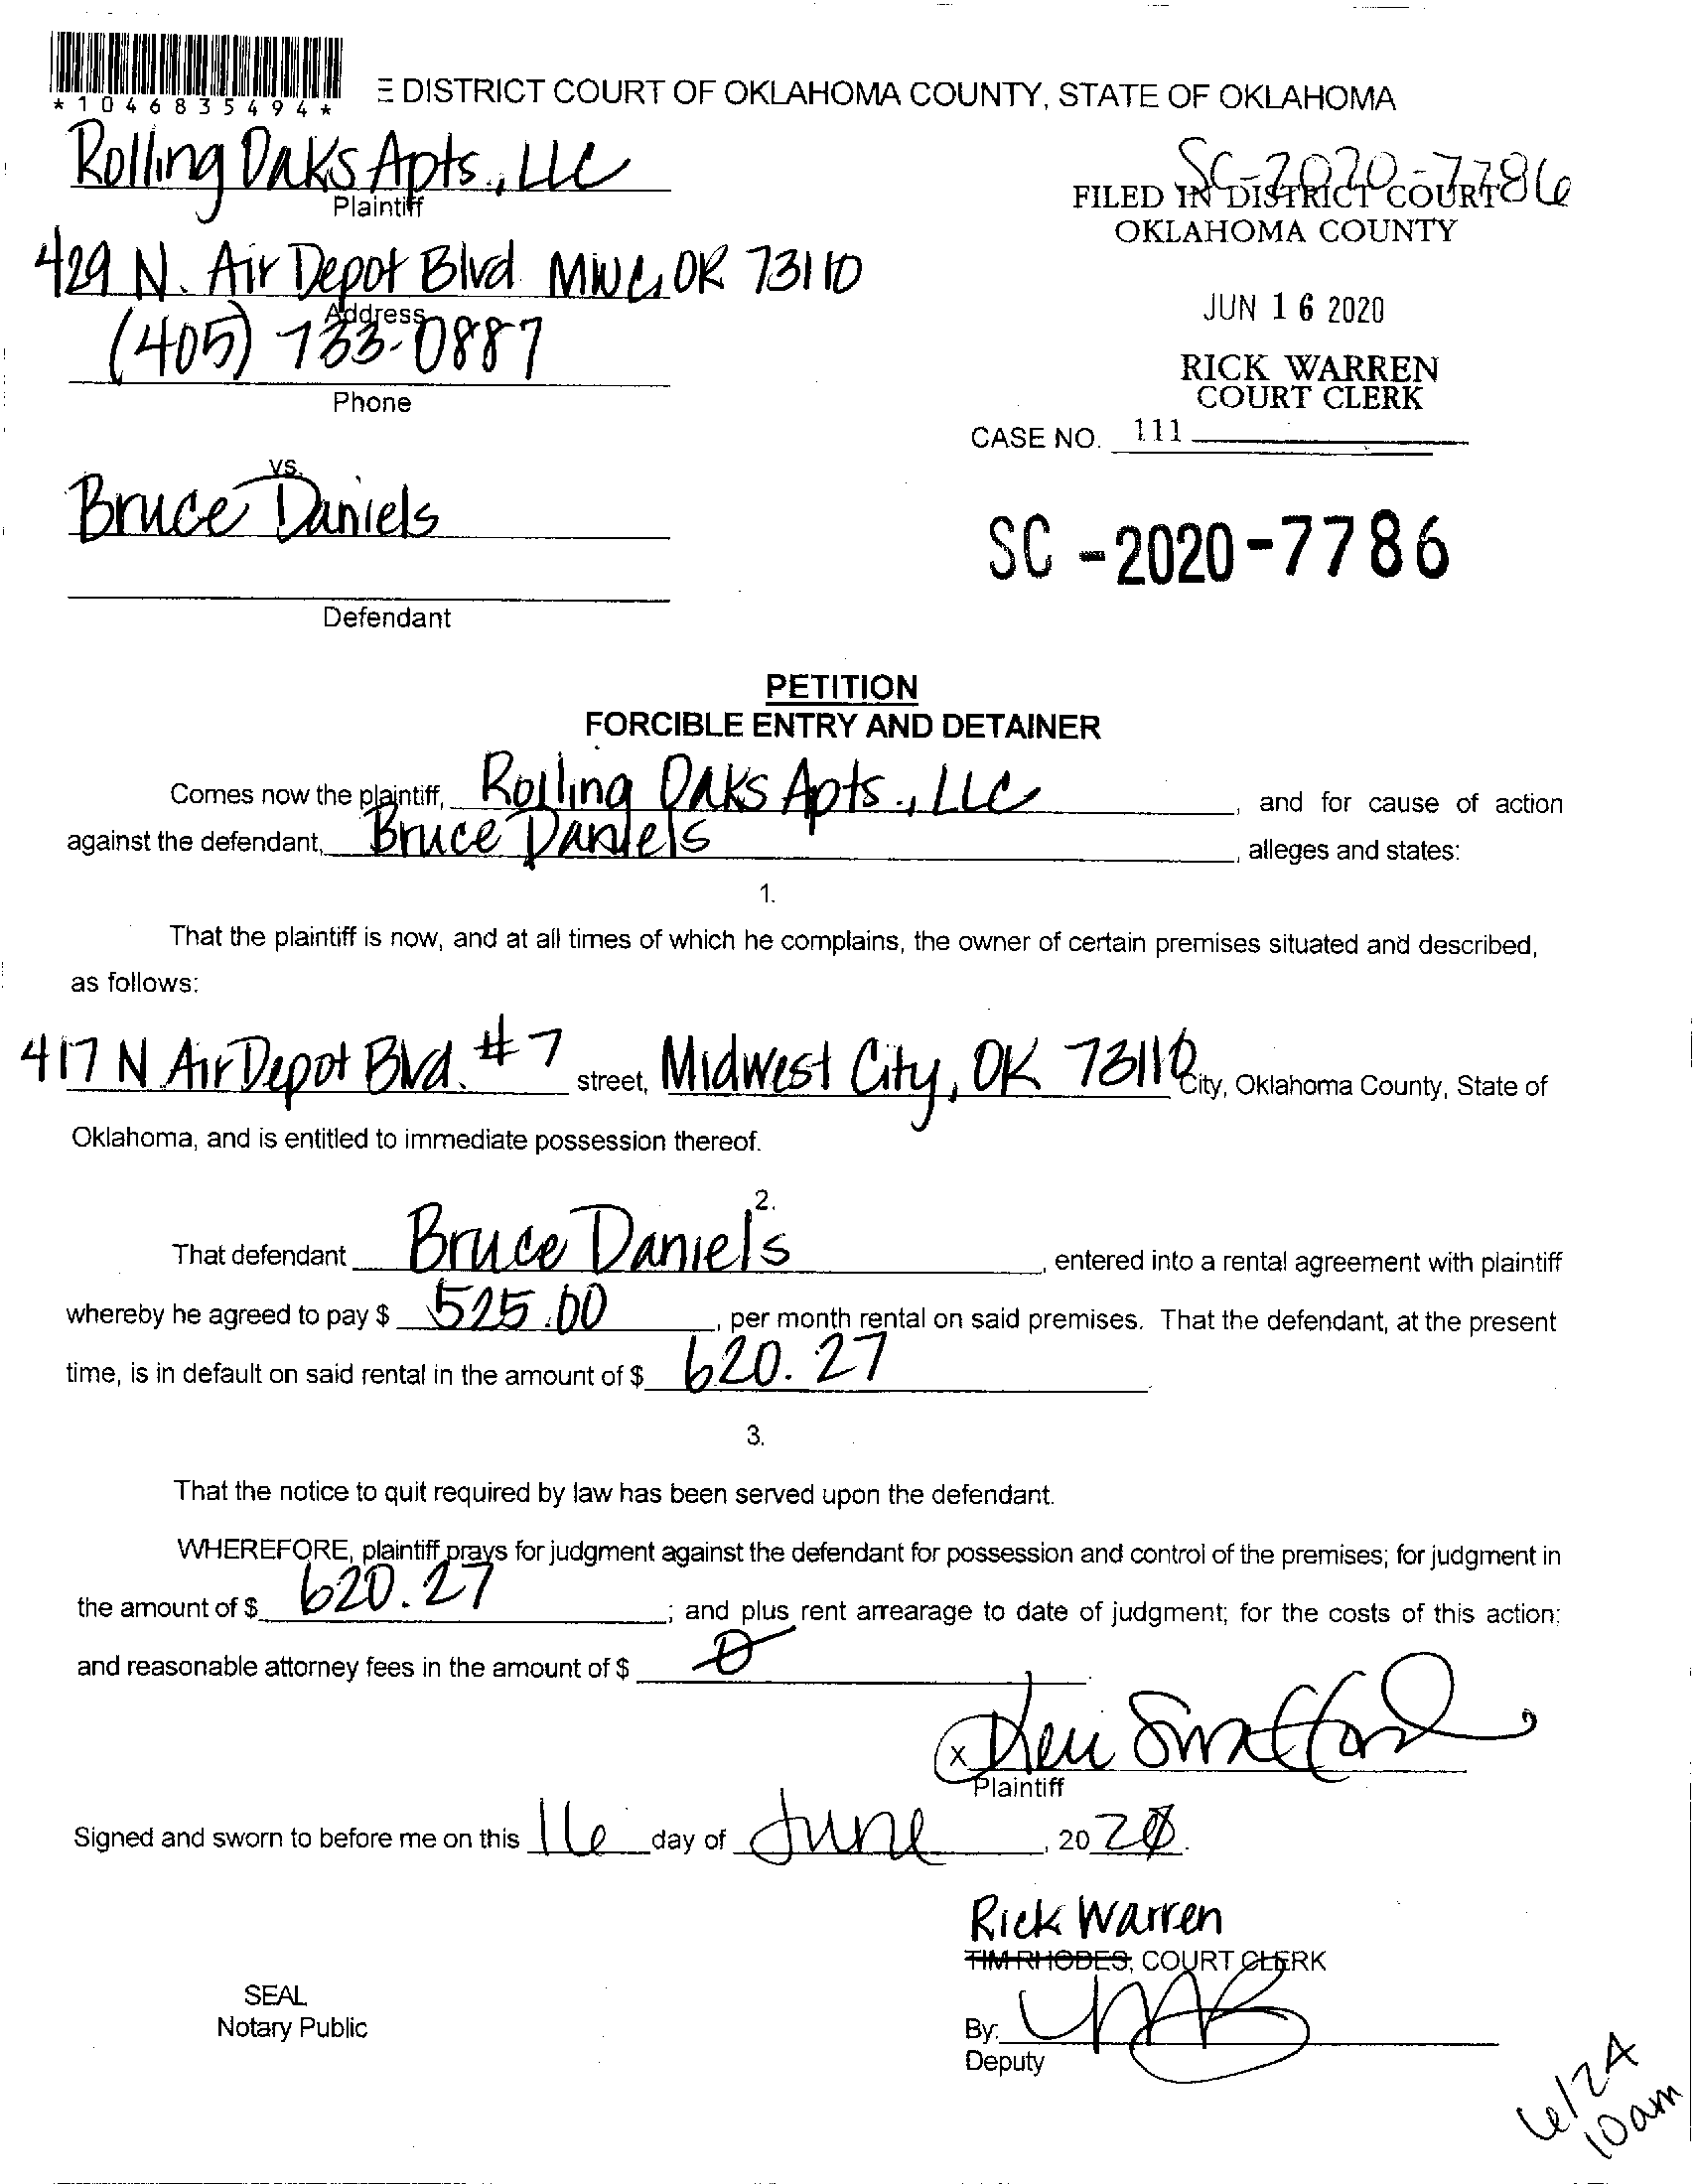 *1046835494*
E DISTRICT COURT OF OKLAHOMA COUNTY, STATE OF OKLAHOMA
Rolling Oaks Apts., LLC
Plaintiff
SC-2020-7786
FILED IN DISTRICT COURT
OKLAHOMA COUNTY
429 N. Air Depot Blvd MWC, OK 73110
Address
(405) 733-0887
Phone
JUN 16 2020
RICK WARREN
COURT CLERK
CASE NO. 111
vs.
Bruce Daniels
Defendant
SC-2020-7786
PETITION
FORCIBLE ENTRY AND DETAINER
Comes now the plaintiff, Rolling Oaks Apts., LLC, and for cause of action
against the defendant, Bruce Daniels, alleges and states:
1.
That the plaintiff is now, and at all times of which he complains, the owner of certain premises situated and described,
as follows:
417 N Air Depot Blvd. #7 street, Midwest City, OK 73110 City, Oklahoma County, State of
Oklahoma, and is entitled to immediate possession thereof.
2.
That defendant Bruce Daniels, entered into a rental agreement with plaintiff
whereby he agreed to pay $ 525.00, per month rental on said premises. That the defendant, at the present
time, is in default on said rental in the amount of $ 620.27
3.
That the notice to quit required by law has been served upon the defendant.
WHEREFORE, plaintiff prays for judgment against the defendant for possession and control of the premises; for judgment in
the amount of $ 620.27; and plus rent arrearage to date of judgment; for the costs of this action;
and reasonable attorney fees in the amount of $ 0
x Keri Swafford
Plaintiff
Signed and sworn to before me on this 16 day of June, 2020.
Rick Warren
TIM RHODES, COURT CLERK
SEAL
Notary Public
By:
Deputy
6/24
10am